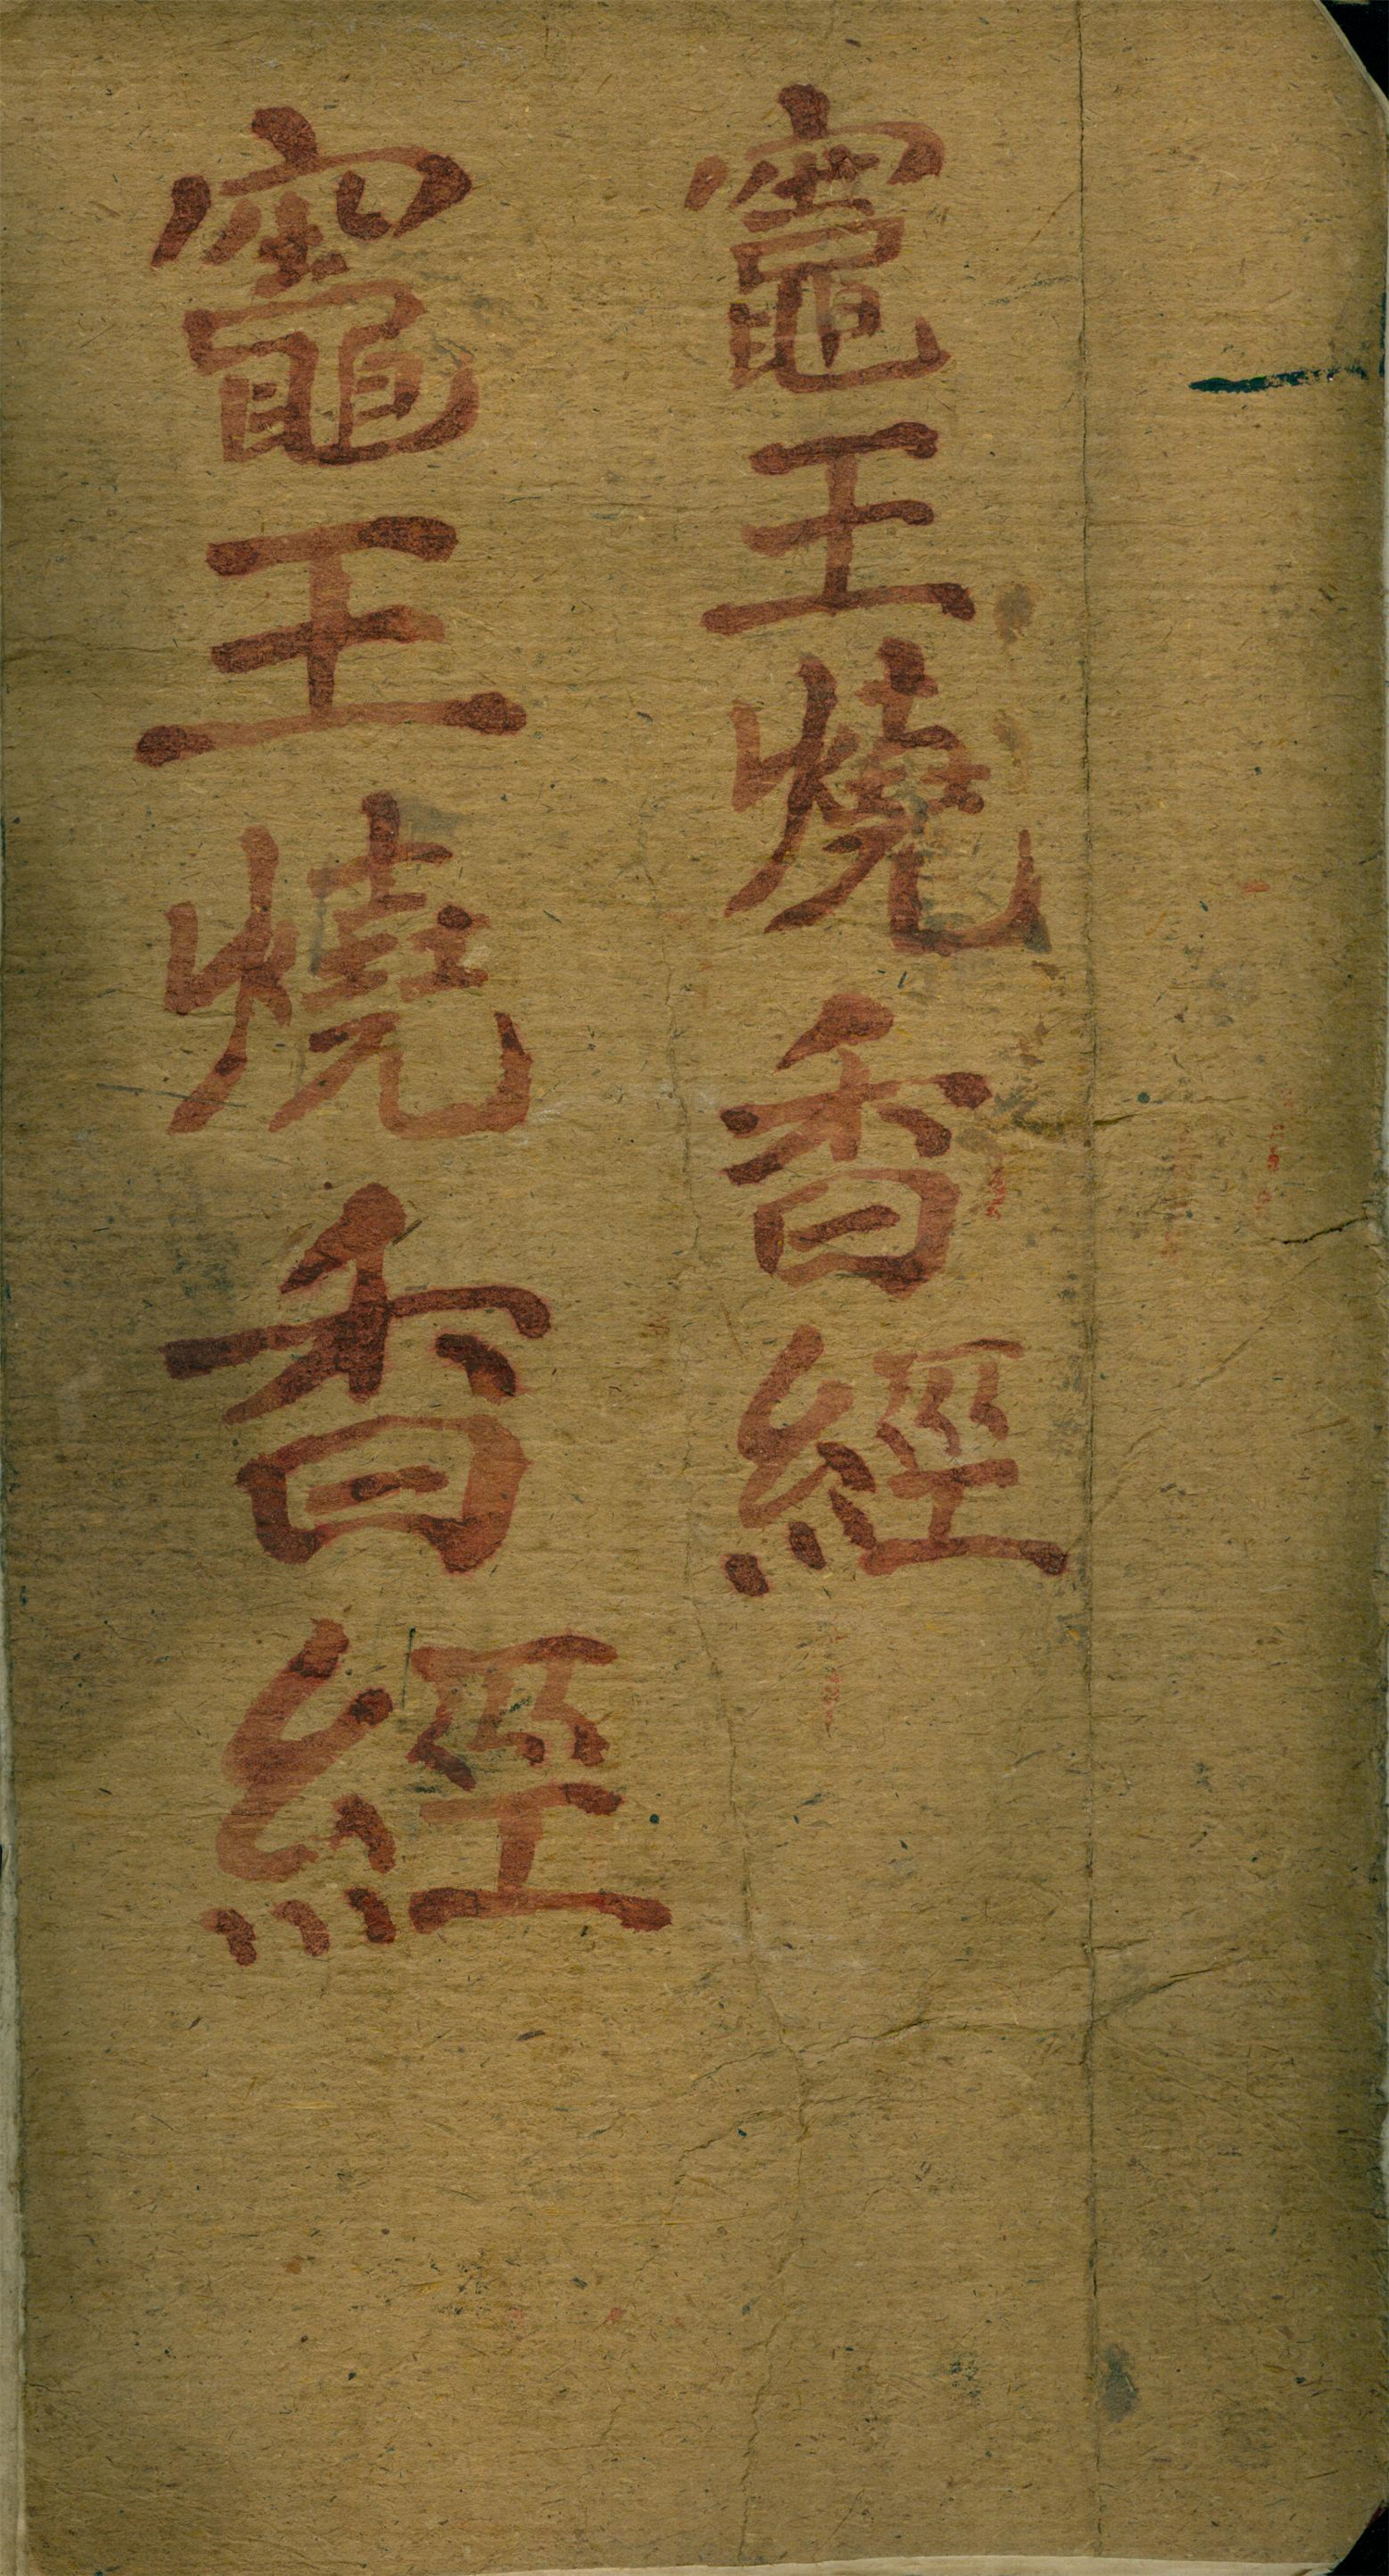 竈王燒香經
竈王燒香經